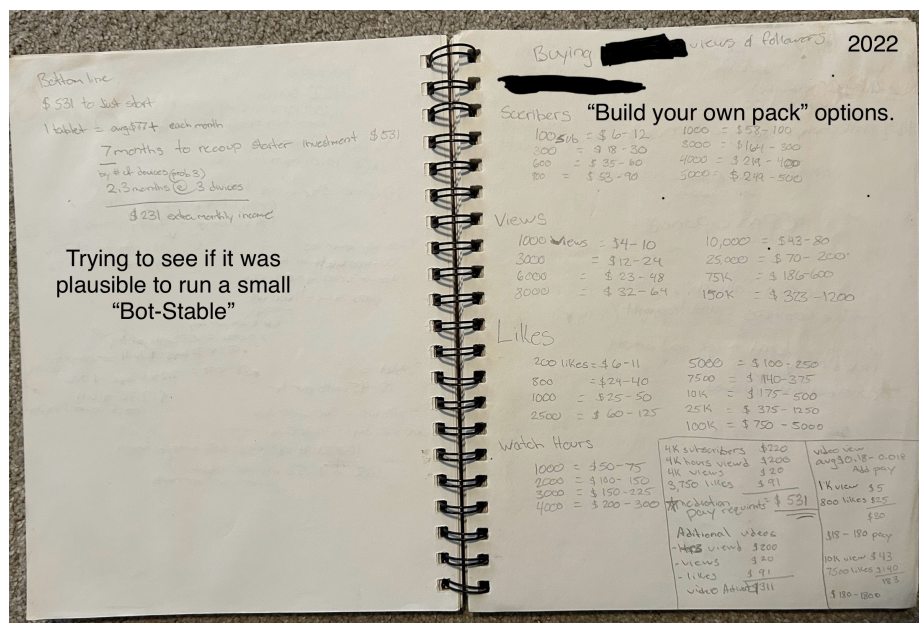 Bottom line
$531 to Just start
1 tablet = avg$77+ each month
7 months to recoup starter investment $531
by # of devices (prob 3)
2.3 months @ 3 divices
$231 extra monthly income
Trying to see if it was
plausible to run a small
“Bot-Stable”
Buying views & followers
2022
“Build your own pack” options.
Sscribers
100 sub = $6-12
300 = $18-30
600 = $35-60
800 = $53-90
1000 = $58-100
3000 = $164-300
4000 = $219-400
5000 = $249-500
Views
1000 views = $4-10
3000 = $12-24
6000 = $23-48
8000 = $32-64
10,000 = $43-80
25,000 = $70-200
75K = $186-600
150K = $323-1200
Likes
200 likes = $6-11
800 = $24-40
1000 = $25-50
2500 = $60-125
5000 = $100-250
7500 = $140-375
10K = $175-500
25K = $375-1250
100K = $750-5000
Watch Hours
1000 = $50-75
2000 = $100-150
3000 = $150-225
4000 = $200-300
4K subscribers $220
4K hours viewd $200
4K views $20
3,750 likes $91
pay requirints = $531
Aditional videos
viewd $200
- views $20
- likes $91
video $311
video view
avg $0.18-0.018
Add pay
1K view $5
800 likes $25
$30
$18-180 pay
10K view $43
7500 likes $140
183
$180-1800